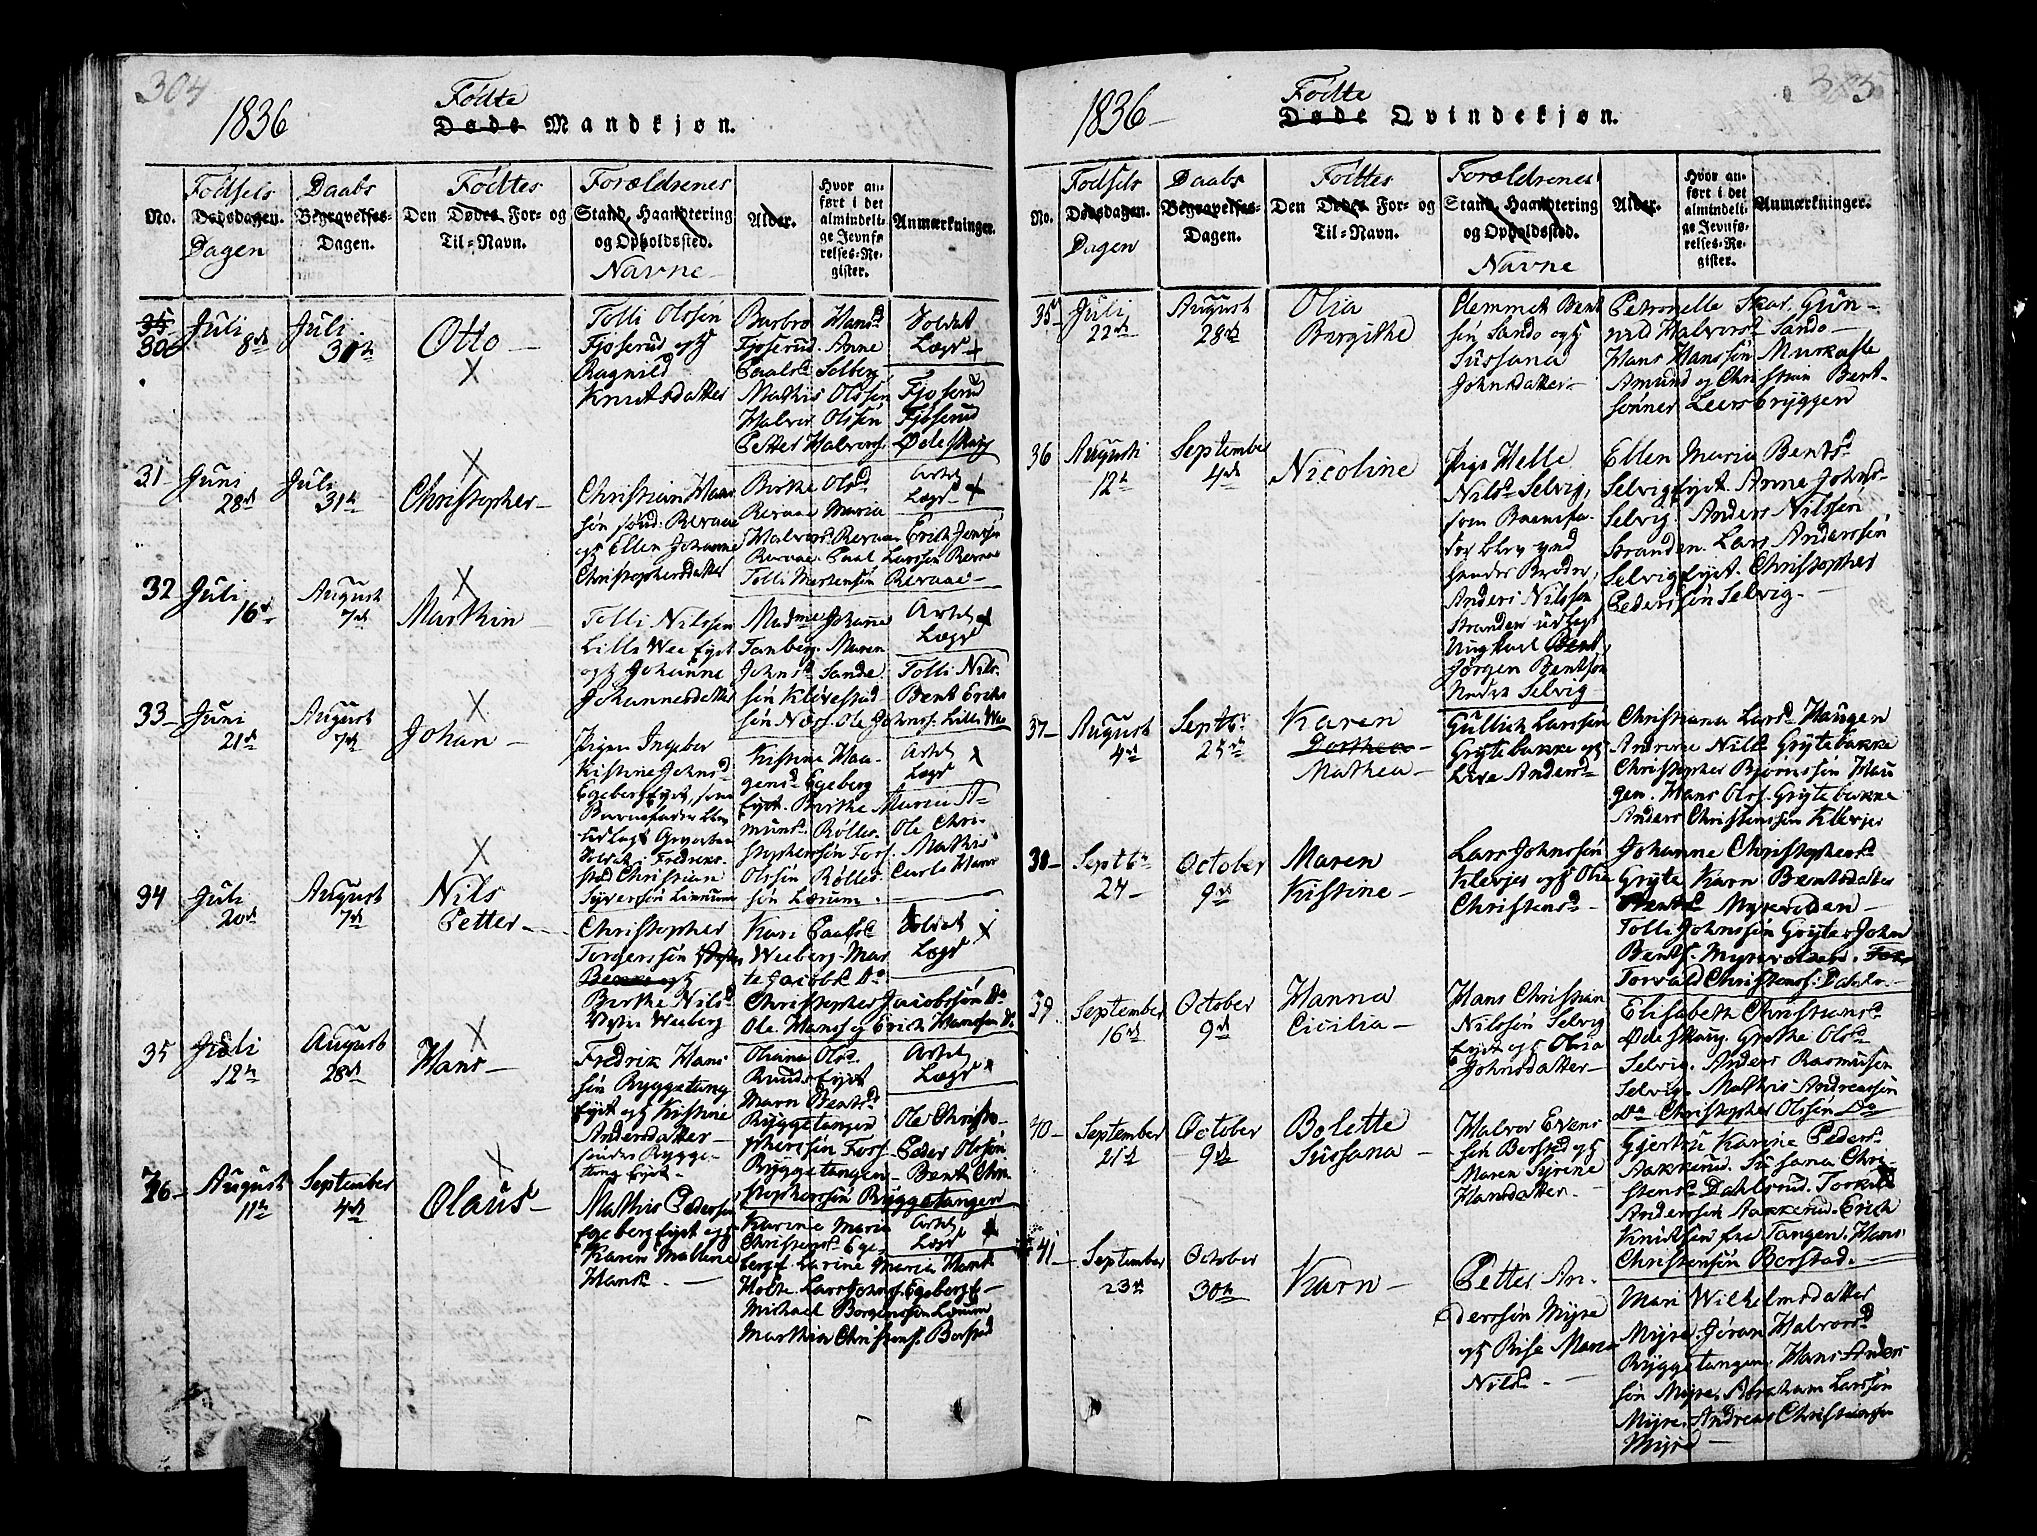 304
1836
Födte
Døde Mandkjøn.
No.
Födsels
Dødsdagen.
Dagen
Daabs
Begravelses-
Dagen.
Födtes
Den Dødes For- og
Til-Navn.
Forældrenes
Stand, Haandtering
og Opholdssted.
Navne
Alder.
Hvor an-
ført i det
almindeli-
ge Jevnfø-
relses-Re-
gister.
Anmærkninger.
35
30
Juli
8de
Juli
31te
Otto
Tolli Olssön
Fjøserud og
Ragnild
Knutsdatter
Barbro Hansd
Fjøserud. Anne
Paalsd Solberg
Mathis Olssön Fjøserud
Halvor Olssön Fjøserud
Petter Halvors. Ødeskoug
Soldat
Lægd
31
Juni
28de
Juli
31te
Christopher
Christian Hans
søn sönd. Revaae
og Ellen Johanne
Christophersdatter
Birthe Olsd
Revaae Maria
Halvorsd. Revaae Erich Jonssön
Revaae. Paal Larssön Revaae
Tolli Mortensön Revaae
Artel
Lægd
32
Juli
16de
August
7de
Marthin
Tolli Nilssön
Lille Wee Eyet
og Johanne
Johannesdatter
Madme Johanne
Tanberg. Maren
Johnsd Sande. Tolli Nils-
sön Klovestad Bent Erich-
sön Næss. Ole Johns. Lille Wee
Artel
Lægd
33
Juni
21de
August
7de
Johan
Pigen Ingebor
Kistine Johnsd
Egeberg Eyet, som
Barnefader blev
udlagt
Soldat Fredriks-
stad Christian
Syverssön Linnum
Kistine Haa-
gensd. Egeberg
Eyet. Birthe Maria A-
munsd. Rölles. Ole Chri-
stopherssön Foss. Mathis
Olssön Rölles. Carls Hans
sön Lærum.
Artel
Lægd
34
Juli
20de
August
7de
Nils
Petter
Christopher
Torgerssön
og
Birthe Nilsd
Weeberg
Kari Paalsd
Weeberg. Mar-
te Jacobsd Do
Christopher Jacobssön Do
Ole Hans og Erich Hanssön Do
Soldat
Lægd
35
Juli
12te
August
28de
Hans
Fredrik Hans
sön Ryggetang
Eyet og Kistine
Andersdatter
sönder Rygge-
tang Eyet
Oliana Olsd.
Ruuds Eyet
Marn Bentsd
Ryggetangen Ole Christo-
pherssön Foss. Peder Olssön
Ryggetangen. Bent Chri-
stopherssön Ryggetangen
Artel
Lægd
36
August
11te
September
4de
Olaus
Mathis Pederssön
Egeberg Eyet og
Karen Mallene
Hansd.
Karine Maria
Christensd Ege-
berg E. Larine Maria Hansd
Holte. Lars Johns. Egeberg E
Michael Borgenssön Lærum
Marthin Christens. Berstad
Artel
Lægd
1836
Födte
Døde Qvindekjøn.
No.
Födsels
Dødsdagen.
Dagen
Daabs
Begravelses-
Dagen.
Födtes
Den Dødes For- og
Til-Navn.
Forældrenes
Stand, Haandtering
og Opholdssted.
Navne
Alder.
Hvor an-
ført i det
almindeli-
ge Jevnfø-
relses-Re-
gister.
Anmærkninger.
35
Juli
22de
August
28de
Olia
Birgithe
Clemmet Bent
sön Sando og
Sussana
Johnsdatter
Petronelle Skar. Gun-
nild Halvorsd Sando
Hans Hanssön Murkaste
Amund og Christian Bent-
sönner Leersbryggen
36
Augusti
12te
September
4de
Nicoline
Pige Helle
Nilsd Selvig,
som Barnefa-
der blev
hendes Broder,
Anders Nilssön
Stranden udlagt
Ungkarl Bent
Jörgen Bentsön
Nedre Selvig
Ellen Maria Bentsd
Selvig Eyet. Anne Johns-
Selvig. Anders Nilssön
Stranden. Lars Anderssön
Selvig Eyet. Christopher
Pederssön Selvig.
37
August
4de
Septbr
25de
Karen
Dorthea
Mathea
Gullich Larssön
Grytebakke og
Live Andersd
Christiana Larsd Haugen
Andrine Nilsd Grytebakke
Christopher Bjørnssön Hau
gen. Hans Olss. Grytebakke
Anders Christenssön Klevjer
38
Septbr
24
October
9de
Maren
Kistine
Lars Johnssön
Klevjer og Olia
Christensd
Johanne Christophersd
Gryte Karn Bentsdatter
Bentsd Myrvolden
Tolli Johnssön Gryte. John
Bents. Myrvolden. Tor
Torvald Christens. Dahler
39
September
16de
October
9de
Hanna
Cicilia
Hans Christian
Nilssön Selvig
Eyet og Olia
Johnsdatter
Elisabeth Christiansd
Ødeskaug. Grethe Olsd
Selvig. Anders Rasmusen
Selvig. Mathis Andreassön
Do Christopher Olssön Do
40
September
21de
October
9de
Bolette
Sussana
Halvor Evens
sön Berstad og
Maren Syrene
Hansdatter
Gjertru Karine Peders-
Aakkerud. Sussana Chri-
stensd Dahlsrud. Torkild
Anderssön Aakkerud. Erich
Knudssön fra Tangen. Hans
Christenssön Berstad.
41
September
23de
October
30te
Karn
Petter An-
derssön Myre
og Rise Maria
Nilsd
Mari Wilhelmsdatter
Myre. Jöran Halvorsd
Ryggetangen. Hans Anders
sön Myre. Abraham Larssön
Myre. Andreas Christianssön
Myre